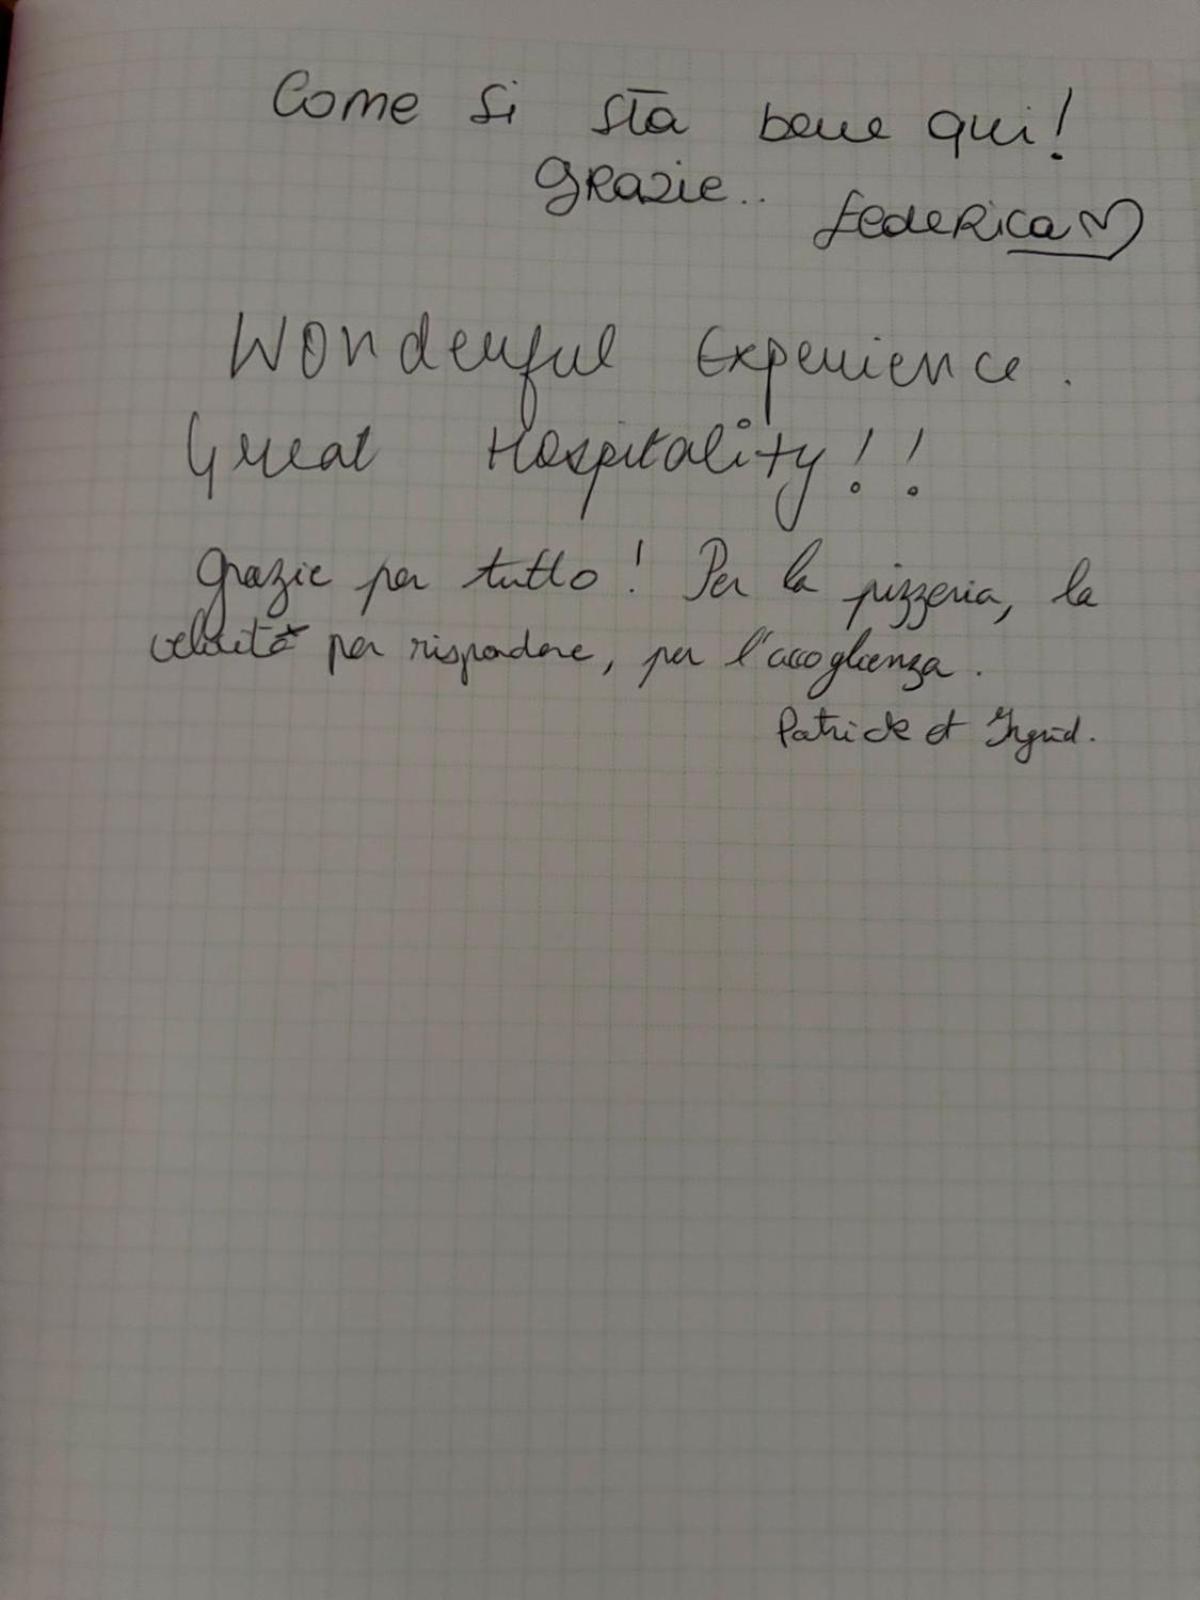 Come si stā bene qui!
Grazie..
Federica
Wonderful Experience.
Great Hospitality!!
Grazie per tutto! Per la pizzeria, la
velocità per rispondere, per l'accoglienza.
Patrick et Ingrid.